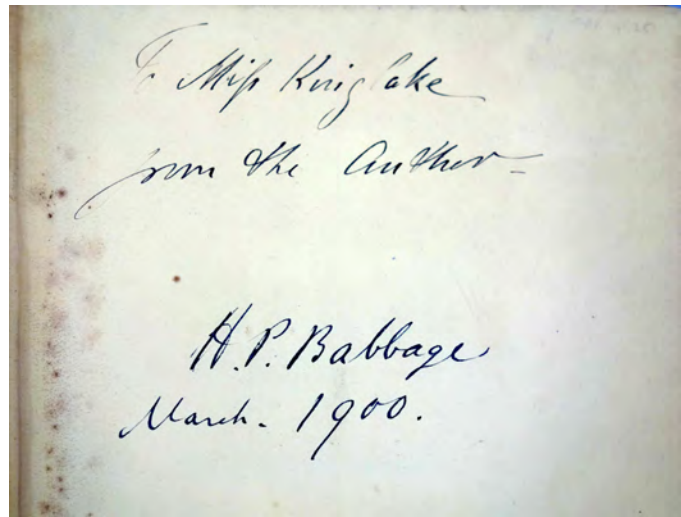 To Miss Kinglake
from the Author -
H. P. Babbage
March. 1900.